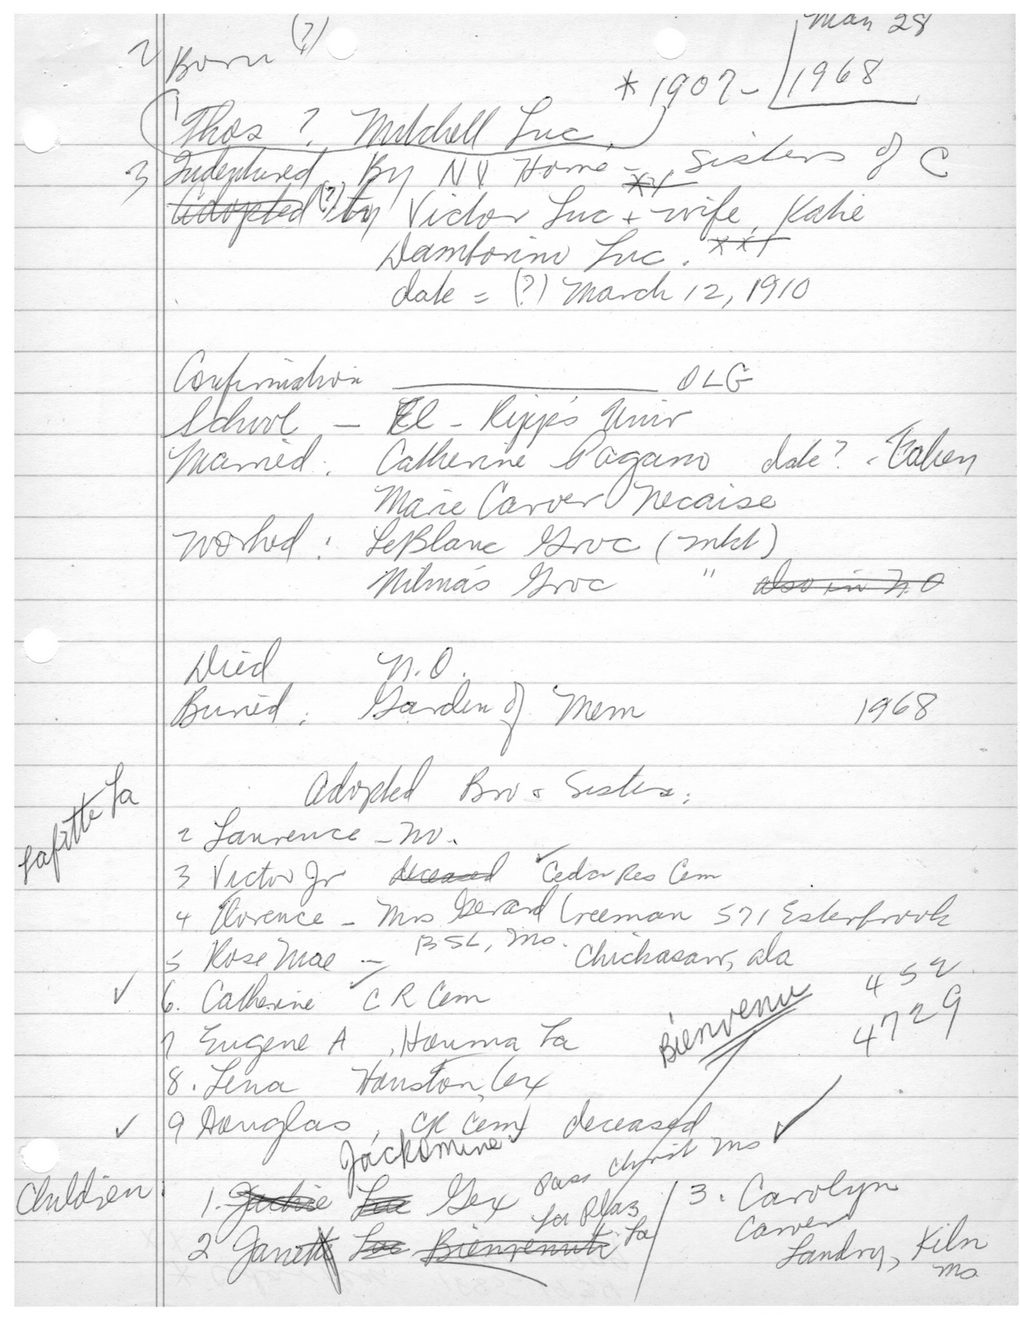 Mar 28
2 Born (?)
* 1907- 1968
1 Thos ? Mitchell Luc.
3 Indentured By NY Home - Sisters of C
adopted (?) by Victor Luc + wife, Katie
Damborino Luc.
date = (?) March 12, 1910
Confirmation ____ OLG
School - El - Kipp's Univ
Married: Catherine Pagano date?
Marie Carver Necaise
Worked: LeBlanc Groc (mkt)
Nilma's Groc " also in N.O
Died N.O.
Buried: Garden of Mem 1968
Adopted Bro & Sisters:
Lafitte La
2 Laurence - no.
3 Victor Jr deceased ✓ Cedar Res Cem
4 Florence - Mrs Gerard Creeman 571 Esterbrook
5 Rose Mae - BSL, Ms. Chickasaw, Ala
✓ 6. Catherine ✓ C R Cem
452
4729
Bienvenu
7 Eugene A, Houma La
8. Lena Houston, Tex
✓ 9 Douglas, CR Cem deceased
Jackomine
Pass Christ Ms ✓
Children: 1. Jackie Luc Gex
La Plas La
2 Janett Luc Bienvenuti
3. Carolyn
Carver
Landry, Kiln
Ms